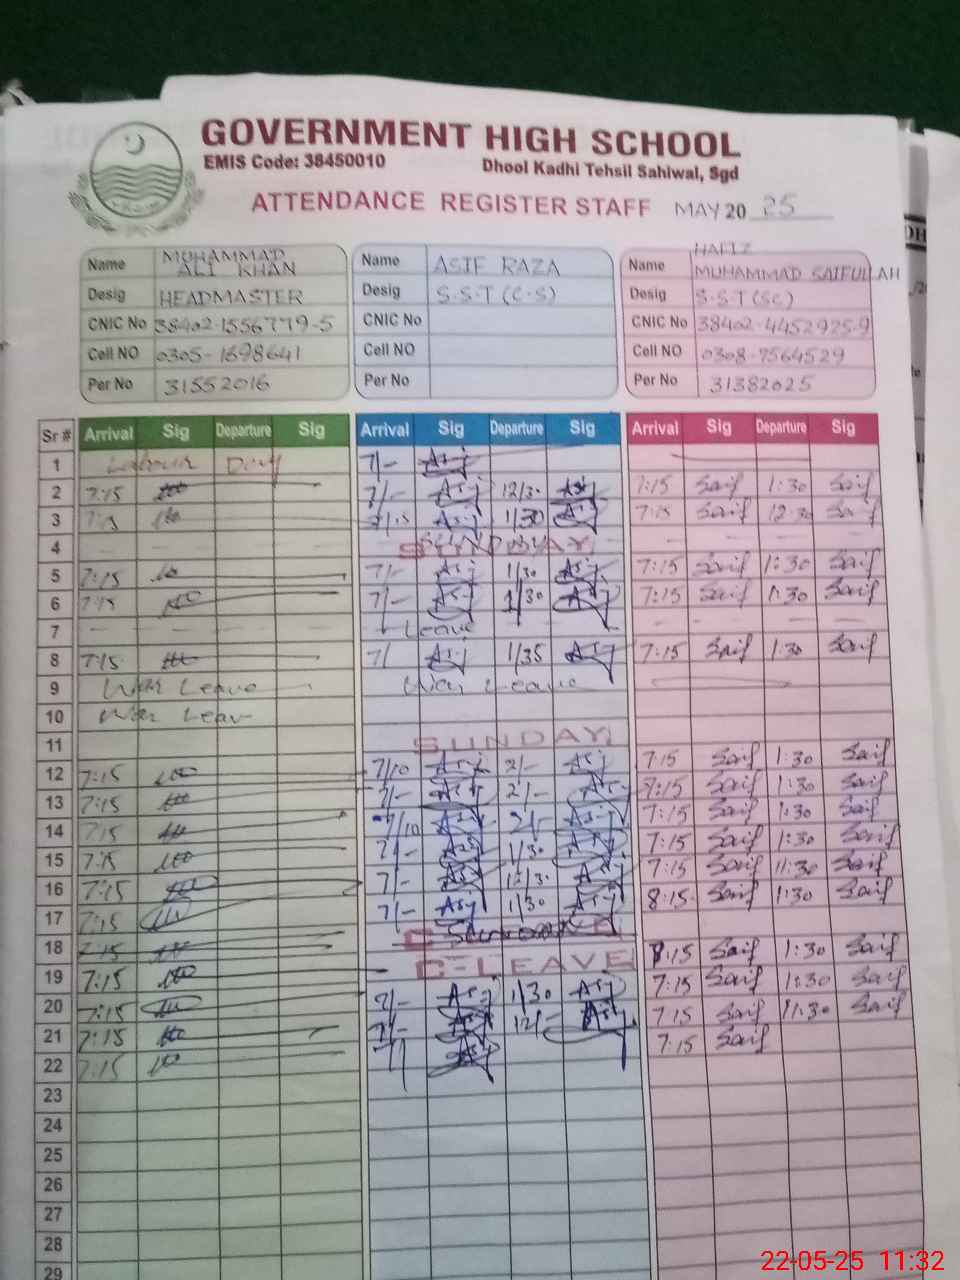 GOVERNMENT HIGH SCHOOL
EMIS Code: 38450010 Dhool Kadhi Tehsil Sahiwal, Sgd
ATTENDANCE REGISTER STAFF MAY 2025
Name MUHAMMAD ALI KHAN
Desig HEADMASTER
CNIC No 38402-1556779-5
Cell NO 0305-1698641
Per No 31552016
Name ASIF RAZA
Desig S.S.T (C.S)
CNIC No
Cell NO
Per No
Name HAFIZ MUHAMMAD SAIFULLAH
Desig S.S.T (SC)
CNIC No 38402-4452925-9
Cell NO 0308-7564529
Per No 31382025
Sr # Arrival Sig Departure Sig Arrival Sig Departure Sig Arrival Sig Departure Sig
1 Labour Day 7/- Asj
2 7:15 7/- Asj 12/30 Asj 7:15 Saif 1:30 Saif
3 7:15 7/15 Asj 1/30 Asj 7:15 Saif 12:30 Saif
4 SUNDAY
5 7:15 7/- Asj 1/30 Asj 7:15 Saif 1:30 Saif
6 7:15 7/- Asj 1/30 Asj 7:15 Saif 1:30 Saif
7 Leave
8 7:15 7/ Asj 1/35 Asj 7:15 Saif 1:30 Saif
9 War Leave War Leave
10 War Leav
11 SUNDAY
12 7:15 7/10 Asj 2/- Asj 7:15 Saif 1:30 Saif
13 7:15 7/- Asj 2/- Asj 7:15 Saif 1:30 Saif
14 7:15 7/10 Asj 2/- Asj 7:15 Saif 1:30 Saif
15 7:15 7/- Asj 1/30 Asj 7:15 Saif 1:30 Saif
16 7:15 7/- Asj Asj 7:15 Saif 11:30 Saif
17 7:15 7/- Asj 1/30 Asj 8:15 Saif 1:30 Saif
18 7:15
19 7:15 C-LEAVE 8:15 Saif 1:30 Saif
20 7:15 7/- Asj 1/30 Asj 7:15 Saif 1:30 Saif
21 7:15 7/- Asj 12/- Asj 7:15 Saif 11:30 Saif
22 7:15 7/ Asj 7:15 Saif
23
24
25
26
27
28
29
22-05-25 11:32